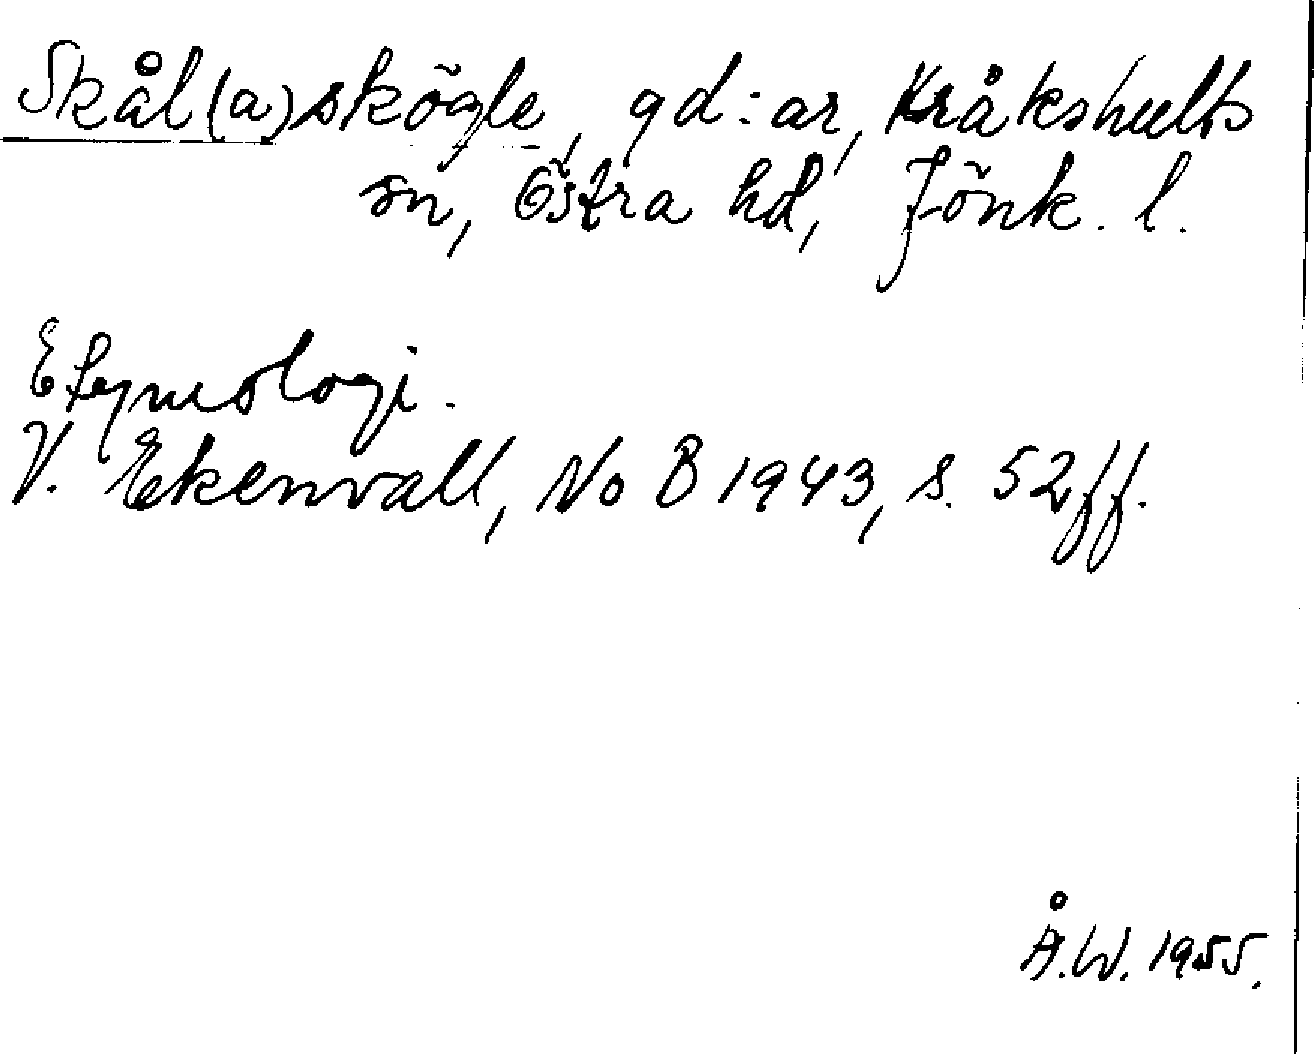 Skål(a)skögle, gd:ar, Kråkshults
sn, Östra hd, Jönk. l.
Etymologi.
V. Ekenvall, NoB 1943, s. 52ff.
Å.W. 1955.